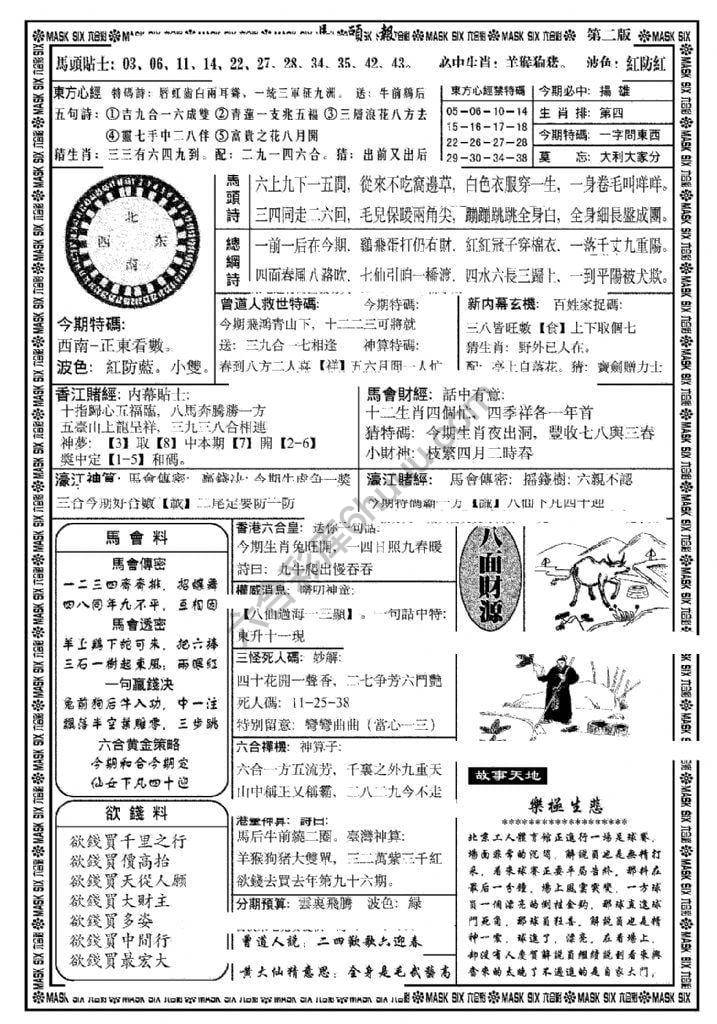 馬頭報
第二版
馬頭貼士:03、06、11、14、22、27、28、34、35、42、43。 必中生肖:羊猴狗豬。 波色:紅防紅
東方心經 特碼詩:唇紅齒白兩耳聳,一統三軍征九洲。 送:牛前鷄后
五句詩:①吉九合一六成雙 ②青蓮一支兆五福 ③三層浪花八方去
④靈七手中二八伴 ⑤富貴之花八月開
猜生肖:三三有六四九到。配:二九一四六合。猜:出前又出后
東方心經禁特碼
05-06-10-14
15-16-17-18
22-26-27-28
29-30-34-38
今期必中: 揚雄
生肖排: 第四
今期特碼: 一字問東西
莫忘: 大利大家分
北
西 东
南
今期特碼:
西南-正東看數。
波色:紅防藍。小雙。
馬頭詩
六上九下一五間,從來不吃窩邊草,白色衣服穿一生,一身卷毛叫咩咩。
三四同走二六回,毛兒保暖兩角尖,蹦蹦跳跳全身白,全身細長盤成團。
總綱詩
一前一后在今期,鷄飛蛋打仍有財,紅紅冠子穿棉衣,一落千丈九重陽。
四面春風八路吹,七仙引咱一橋渡,四水六長三歸上,一到平陽被犬欺。
曾道人救世特碼: 今期特碼:
今期飛鴻青山下,十二二三可將就
送:三九合一七相逢 神算特碼:
春到八方二人喜【祥】五六月間一人忙
新内幕玄機: 百姓家捉碼:
三八皆旺數【食】上下取個七
猜生肖:野外已人在。
配:亭上自落花。猜:寶劍贈力士
香江賭經:内幕貼士:
十指歸心五福臨,八馬奔騰勝一方
五臺山上龍呈祥,三九三八合相連
神夢:【3】取【8】中本期【7】開【2-6】
獎中定【1-5】和碼。
馬會財經: 話中有意:
十二生肖四個忙,四季祥各一年首
猜特碼:今期生肖夜出洞,豐收七八與三春
小財神:枝繁四月二時春
濠江神算:馬會傳密:
三合今期好合數【誠】二尾定要防一防
濠江賭經: 馬會傳密:摇錢樹:六親不認
馬會料
馬會傳密
一二三四齊齊排,招蝶舞
四八同年九不平,互相因
馬會透密
羊上鷄下蛇可來,把六捧
三石一樹起東風,兩暖紅
一句贏錢决
兔前狗后牛入功,中一注
飄落半空葉雕零,三步跳
六合黄金策略
今期和合今期定
仙女下凡四十迎
欲錢料
欲錢買千里之行
欲錢買價高抬
欲錢買天從人願
欲錢買大財主
欲錢買多姿
欲錢買中間行
欲錢買最宏大
香港六合皇:送你一句話:
今期生肖兔旺開,一四日照九春暖
詩曰:九牛爬出慢吞吞
權威消息:
【八仙過海一三顯】。一句話中特:
東升十一現
三怪死人碼:妙解:
四十花開一聲香,二七争芳六門艷
死人碼:11-25-38
特别留意:彎彎曲曲(當心一三)
六合禪機:神算子:
六合一方五流芳,千裏之外九重天
山中稱王又稱霸,二八二九今不走
馬后牛前繞二圈。臺灣神算:
羊猴狗猪大雙單,三二萬紫三千紅
欲錢去買去年第九十六期。
分期預算:雲裏飛騰 波色:緑
曾道人説:二四歡歌六迎春
黄大仙精意思:全身是毛武藝高
八面財源
故事天地
樂極生悲
北京工人體育館正進行一場足球賽,
場面非常的沉悶,解説員也是無精打
采,看來球賽正要平局告終,那料在
最后一分鐘,場上風雲突變,一方球
員一個漂亮的倒挂金鈎,那球直逶球
門死角,那球員狂喜,解説員也是精
神一索,球進了,漂亮,在看場上,
却没有人慶賀解説員繼續説到看來興
奮來的太晚了不過進的是自家大門,